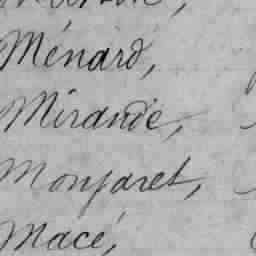 Ménard,
Mirande,
Monjaret,
Macé,